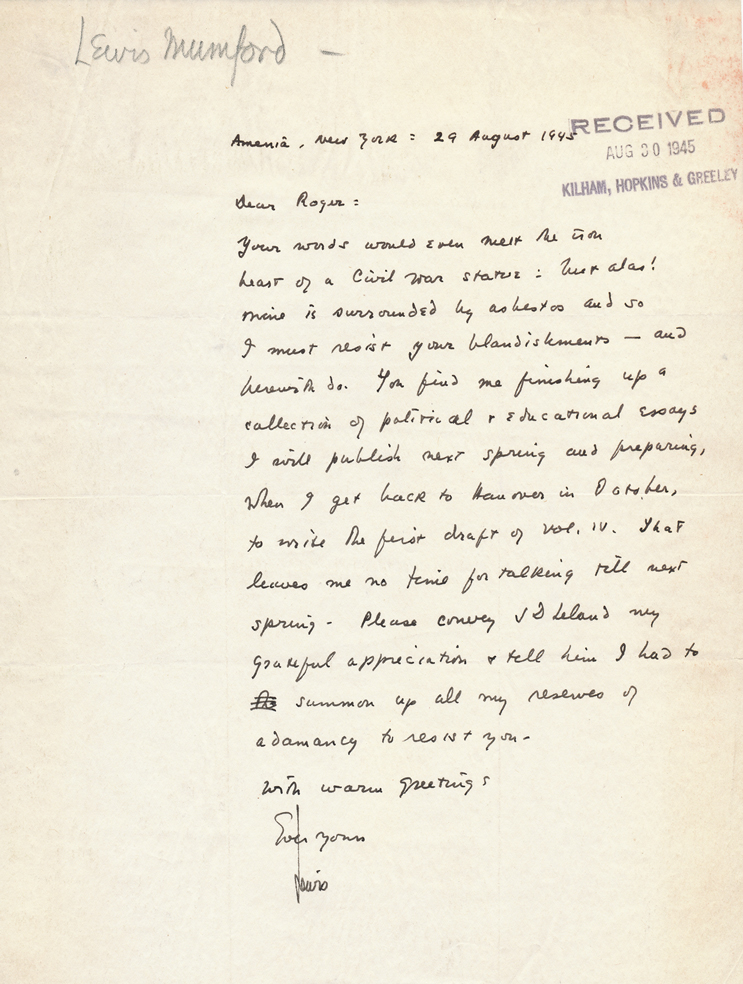 Lewis Mumford -
Amenia, New York: 29 August 1945
RECEIVED
AUG 30 1945
KILHAM, HOPKINS & GREELEY
Dear Roger:
Your words would even melt the iron
heart of a Civil War statue: but alas!
mine is surrounded by asbestos and so
I must resist your blandishments — and
herewith do. You find me finishing up a
collection of political & educational essays
I will publish next spring and preparing,
when I get back to Hanover in October,
to write the first draft of Vol. IV. That
leaves me no time for talking till next
spring. Please convey J D Leland my
grateful appreciation & tell him I had to
summon up all my reserves of
adamancy to resist you.
With warm greetings
Ever yours
Lewis